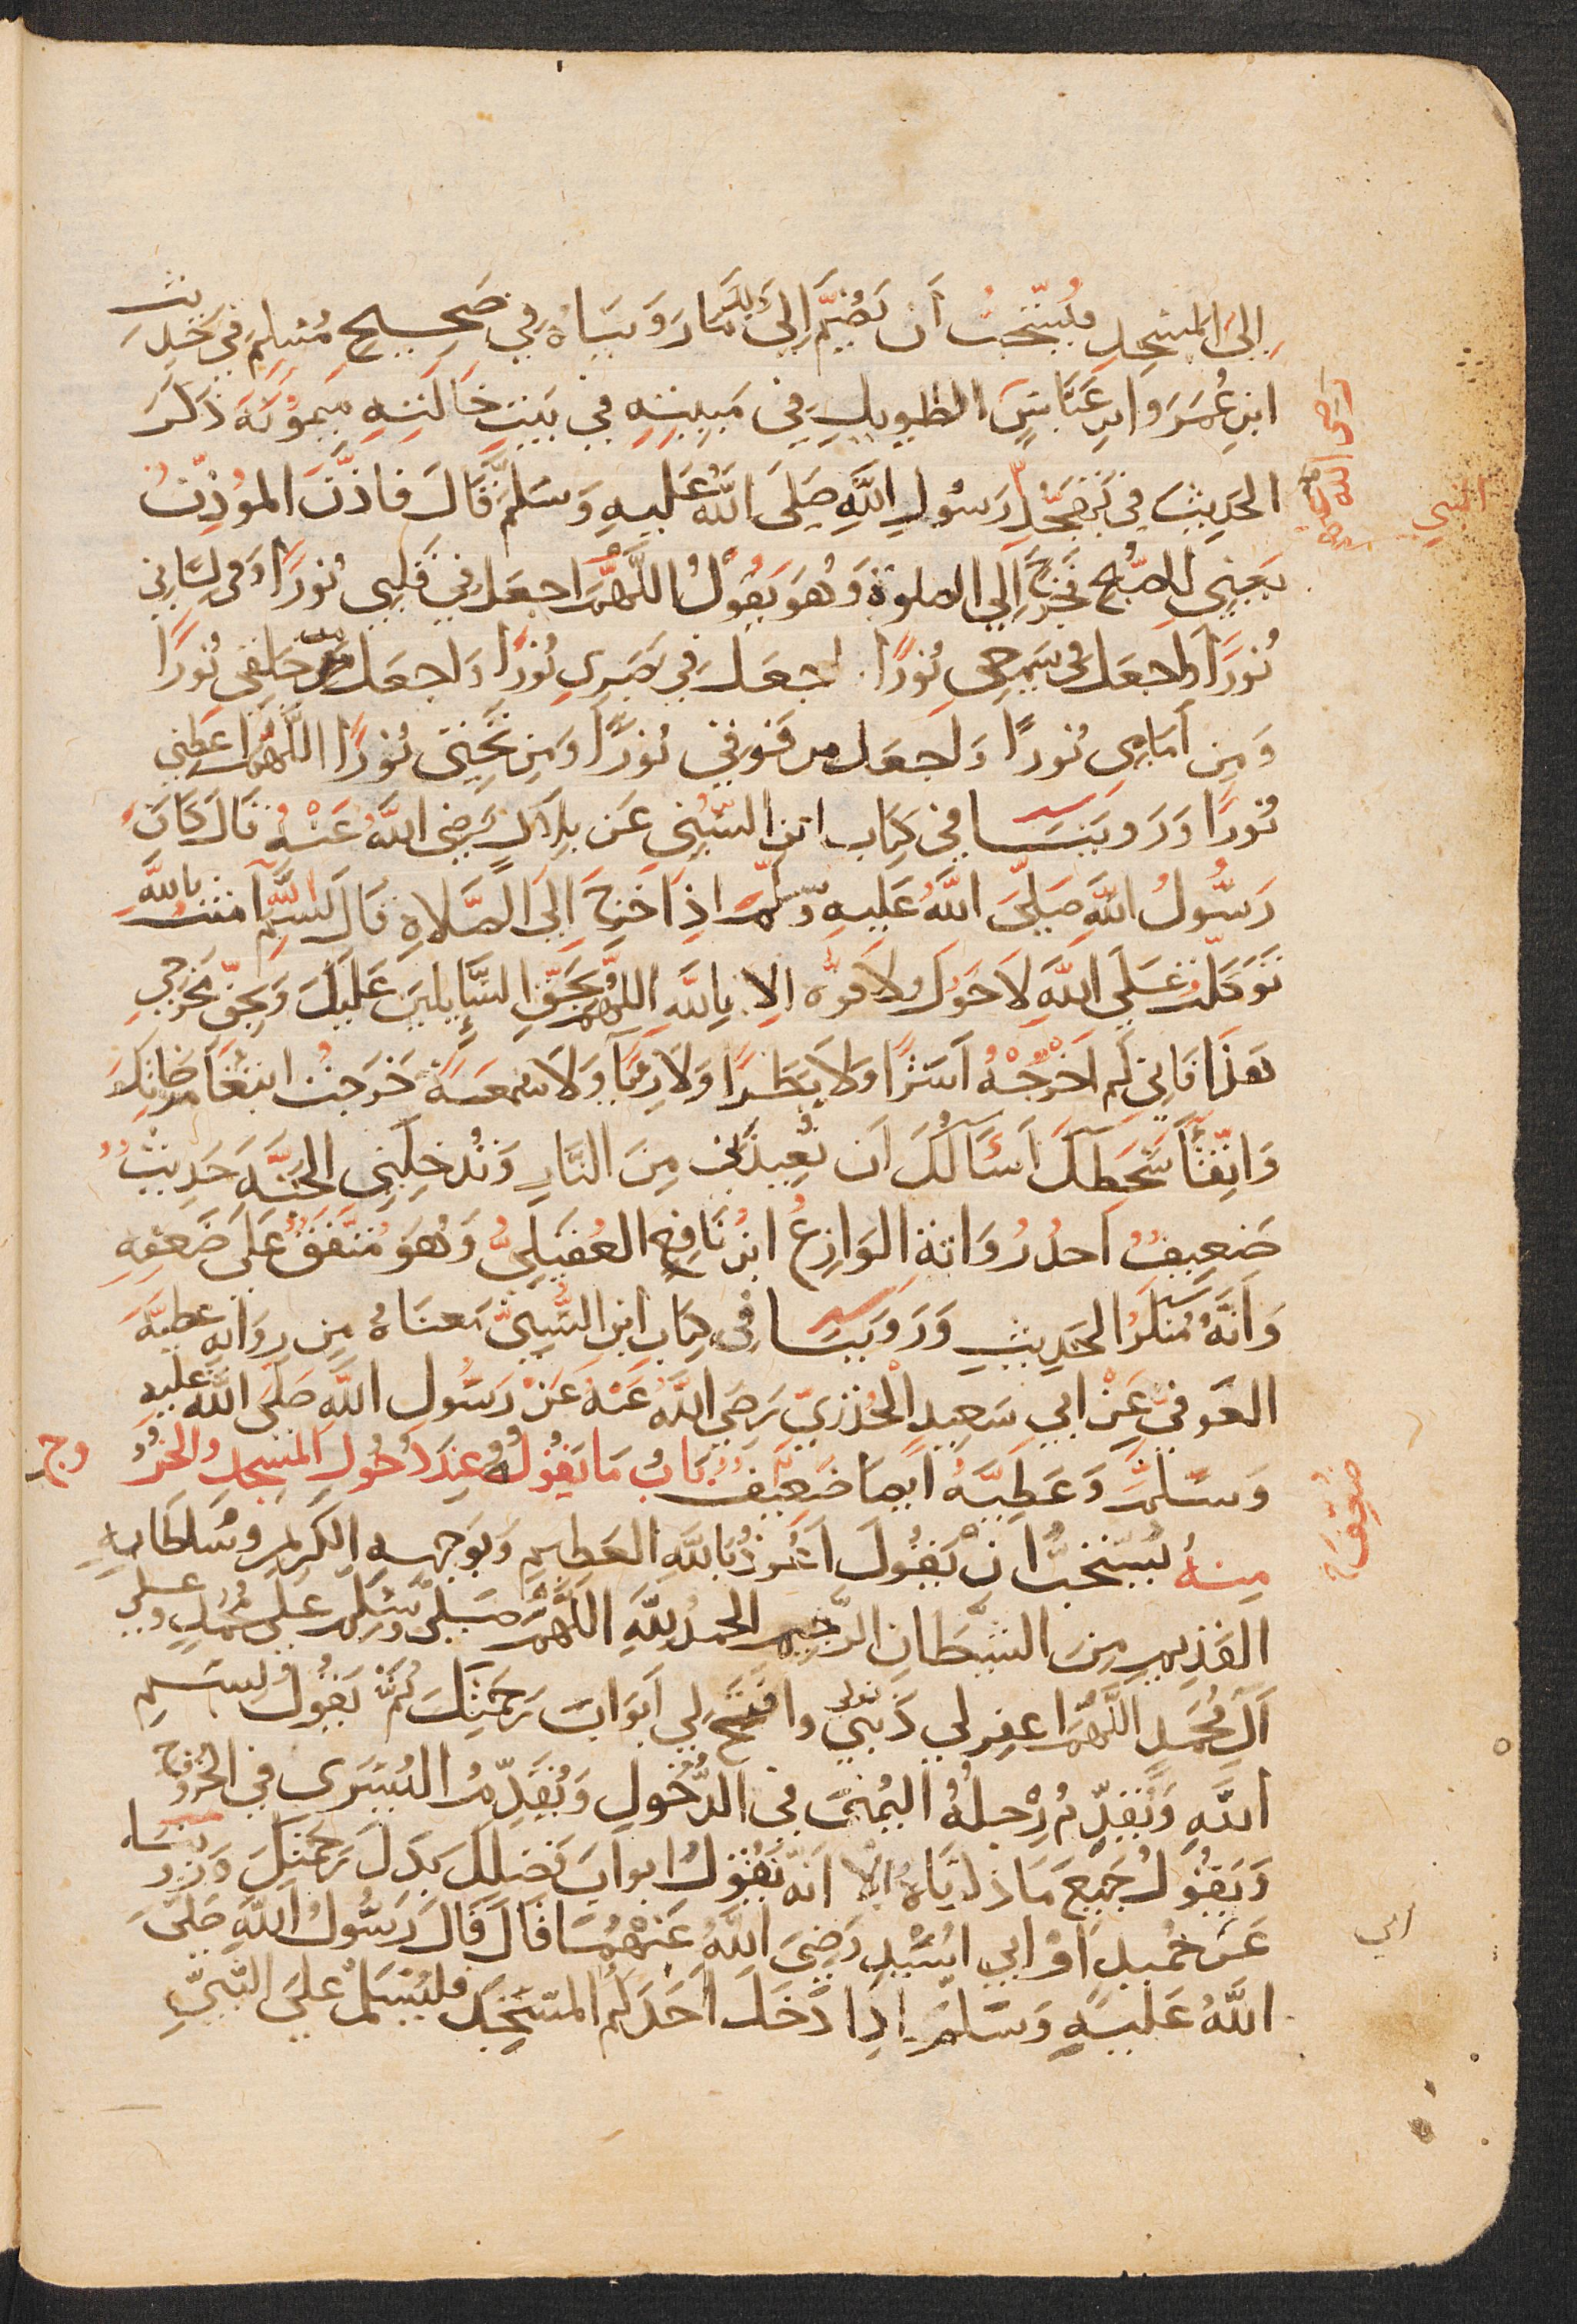 إلى المسجد فيستحب أن يضم إلى ذلك ما رويناه في صحيح مسلم في حديث
ابن عمر وابن عباس الطويل في مبيته في بيت خالته ميمونة ذكر
الحديث في تهجد رسول الله صلى الله عليه وسلم قال فاذن المؤذن
يعني للصبح فخرج إلى الصلوة وهو يقول اللهم اجعل في قلبي نورا وفي لساني
نورا واجعل في سمعي نورا اجعل في بصري نورا واجعل من خلفي نورا
ومن أمامي نورا واجعل من فوقي نورا ومن تحتي نورا اللهم اعطني
نورا وروينا في كتاب ابن السني عن بلال رضي الله عنه قال كان
رسول الله صلى الله عليه وسلم اذا خرج إلى الصلاة قال بسم الله آمنت بالله
توكلت على الله لا حول ولا قوة الا بالله اللهم بحق السايلين عليك وبحق مخرجي
هذا فاني لم اخرجه اشرا ولا بطرا ولا رياء ولا سمعة خرجت ابتغا مرضاتك
واتقاء سخطك أسألك أن تعيذني من النار وتدخلني الجنة حديث
ضعيف احد رواته الوازع ابن نافع العقيلي وهو متفق على ضعفه
وأنه منكر الحديث وروينا في كتاب ابن السني معناه من رواية عطية
العوفي عن ابي سعيد الخدري رضي الله عنه عن رسول الله صلى الله عليه
وسلم وعطية ايضا ضعيف باب ما يقوله عند دخول المسجد والخروج
منه يستحب ان يقول اعوذ بالله العظيم وبوجهه الكريم وسلطانه
القديم من الشيطان الرجيم الحمد لله اللهم صل وسلم على محمد وعلى
آل محمد اللهم اغفر لي ذنوبي وافتح لي أبواب رحمتك ثم يقول بسم
الله ويقدم رجله اليمنى في الدخول ويقدم اليسرى في الخروج
ويقول جميع ما ذكرناه الا انه يقول ابواب فضلك بدل رحمتك وروينا
عن حميد او ابي اسيد رضي الله عنهما قال قال رسول الله صلى
الله عليه وسلم اذا دخل احدكم المسجد فليسلم على النبي
رضي الله عنهم
النبي
ضعيف
ابي